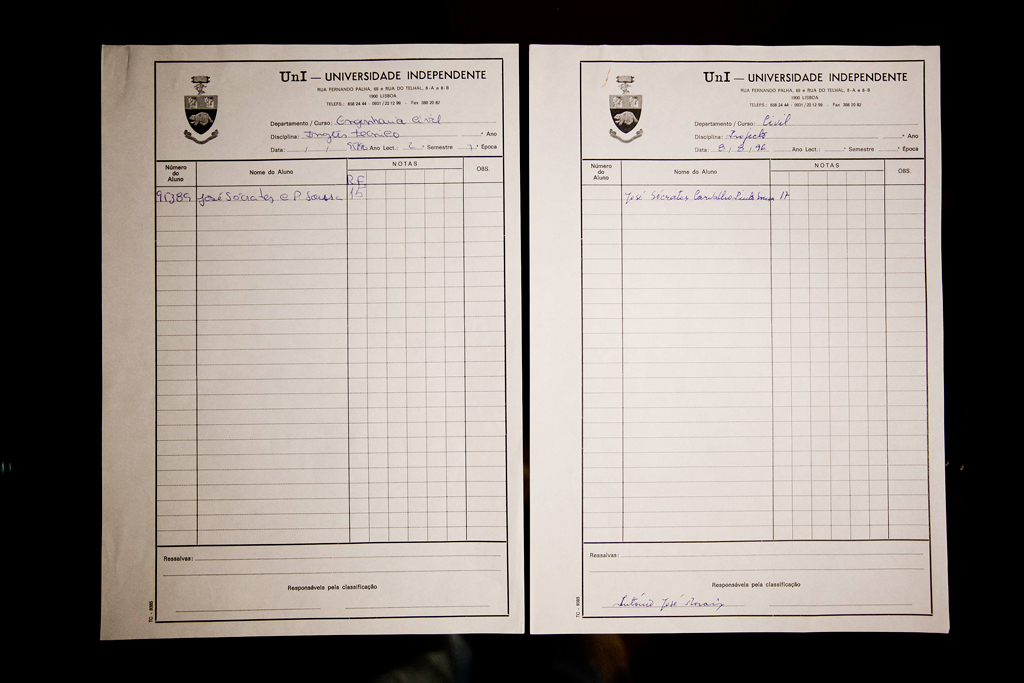 UnI — UNIVERSIDADE INDEPENDENTE
RUA FERNANDO PALHA, 69 e RUA DO TELHAL, 8-A e 8-B
1900 LISBOA
TELEFS.: 858 24 44 - 0931 / 22 12 99 - Fax 388 20 82
Departamento / Curso: Engenharia Civil
Disciplina: Inglês técnico .º Ano
Data: / / 95/96 Ano Lect.: .º Semestre .ª Época
Número do Aluno
Nome do Aluno
NOTAS
OBS.
RF
95389 José Sócrates C P Sousa 15
Ressalvas:
Responsáveis pela classificação
TC - 9065
UnI — UNIVERSIDADE INDEPENDENTE
RUA FERNANDO PALHA, 69 e RUA DO TELHAL, 8-A e 8-B
1900 LISBOA
TELEFS.: 858 24 44 - 0931 / 22 12 99 - Fax 388 20 82
Departamento / Curso: Civil
Disciplina: Projecto .º Ano
Data: 8 / 8 / 96 Ano Lect.: .º Semestre .ª Época
Número do Aluno
Nome do Aluno
NOTAS
OBS.
José Sócrates Carvalho Pinto Sousa 17
Ressalvas:
Responsáveis pela classificação
António José Morais
TC - 9065